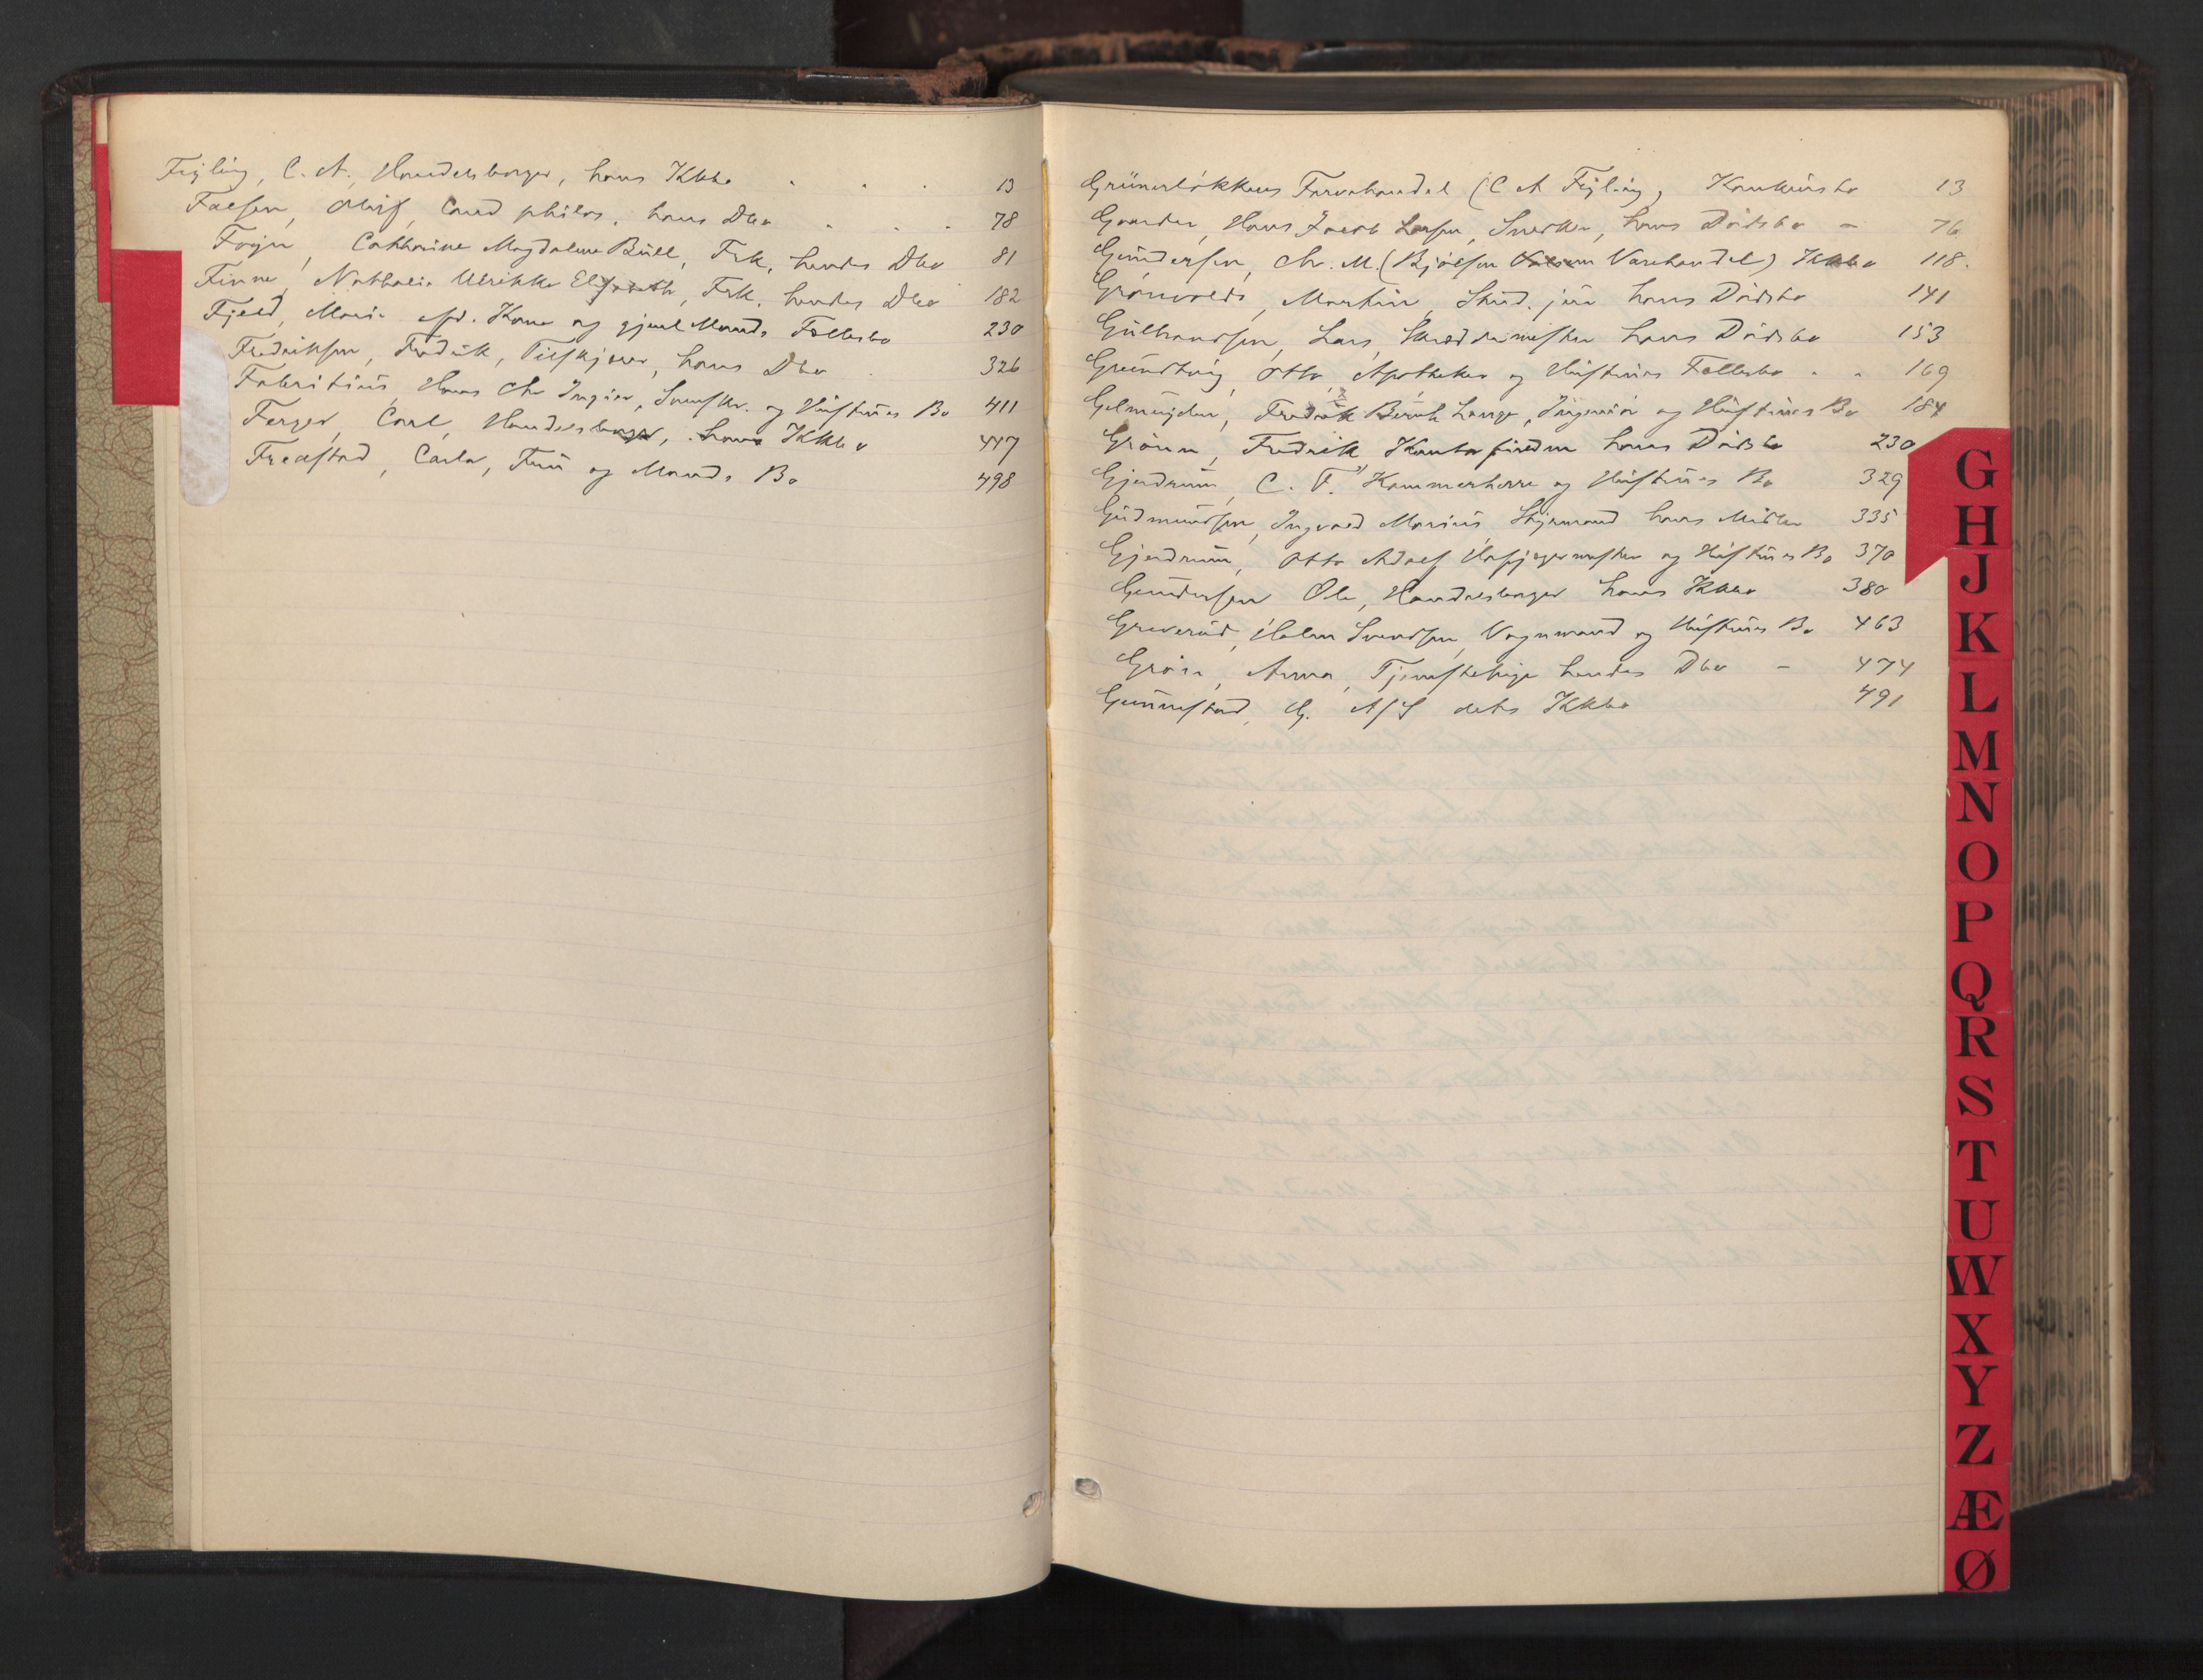 Fejling, C. A., Handelsborger, hans Kkbo . . . 13
Falsen, Oluf, Cand philos. hans Dbo . . . 78
Fogn, Cathrine Magdalene Büll, Frk. hendes Dbo 81
Finne, Nathalie Ulrikke Elisabeth, Frk. hendes Dbo 182
Fjeld, Marie Kone og gjenl Mands Fællesbo 230
Fredriksen, Fredrik, hans Dbo . 326
Fabritius, Hans Chr og Hustrues Bo 411
Ferger, Carl, Handelsborger, hans Kkbo 447
Fredstad, Carla, Frue og Mands Bo 498
Grünerløkkens Farvehandel (C A Fejling) Konkursbo 13
Gaarder, Hans Jacob Larsen, Snedker, hans Dødsbo - 76
Gundersen, Chr. M. (Bjølsen Varehandel) Kkbo 118.
Grønvold, Martin, Stud. jur hans Dødsbo 141
Gulbrandsen, Lars, Skræddermester hans Dødsbo 153
Grundtvig, Otto, Apotheker og Hustrues Fællesbo . . 169
Gelmuyden, Fredrik Bernh Lange, Ingeniør og Hustrues Bo 184
Grønn, Fredrik hans Dødsbo 230
Gjerdrum, C. F. Kammerherre og Hustrues Bo 329
Gudmundsen, Ingvald Marius Styrmand hans 335
Gjerdrum, Otto Adolf Hofjægermester og Hustrues Bo 370
Gundersen Ole, Handelsborger hans Kkbo 380
Greverud, Svendsen, Vognmand og Hustrues Bo 463
Anna, Tjenestepige hendes Dbo - 474
Gunnestad, G. A/S dets Kkbo 491
G
H
J
K
L
M
N
O
P
Q
R
S
T
U
W
X
Y
Z
Æ
Ø